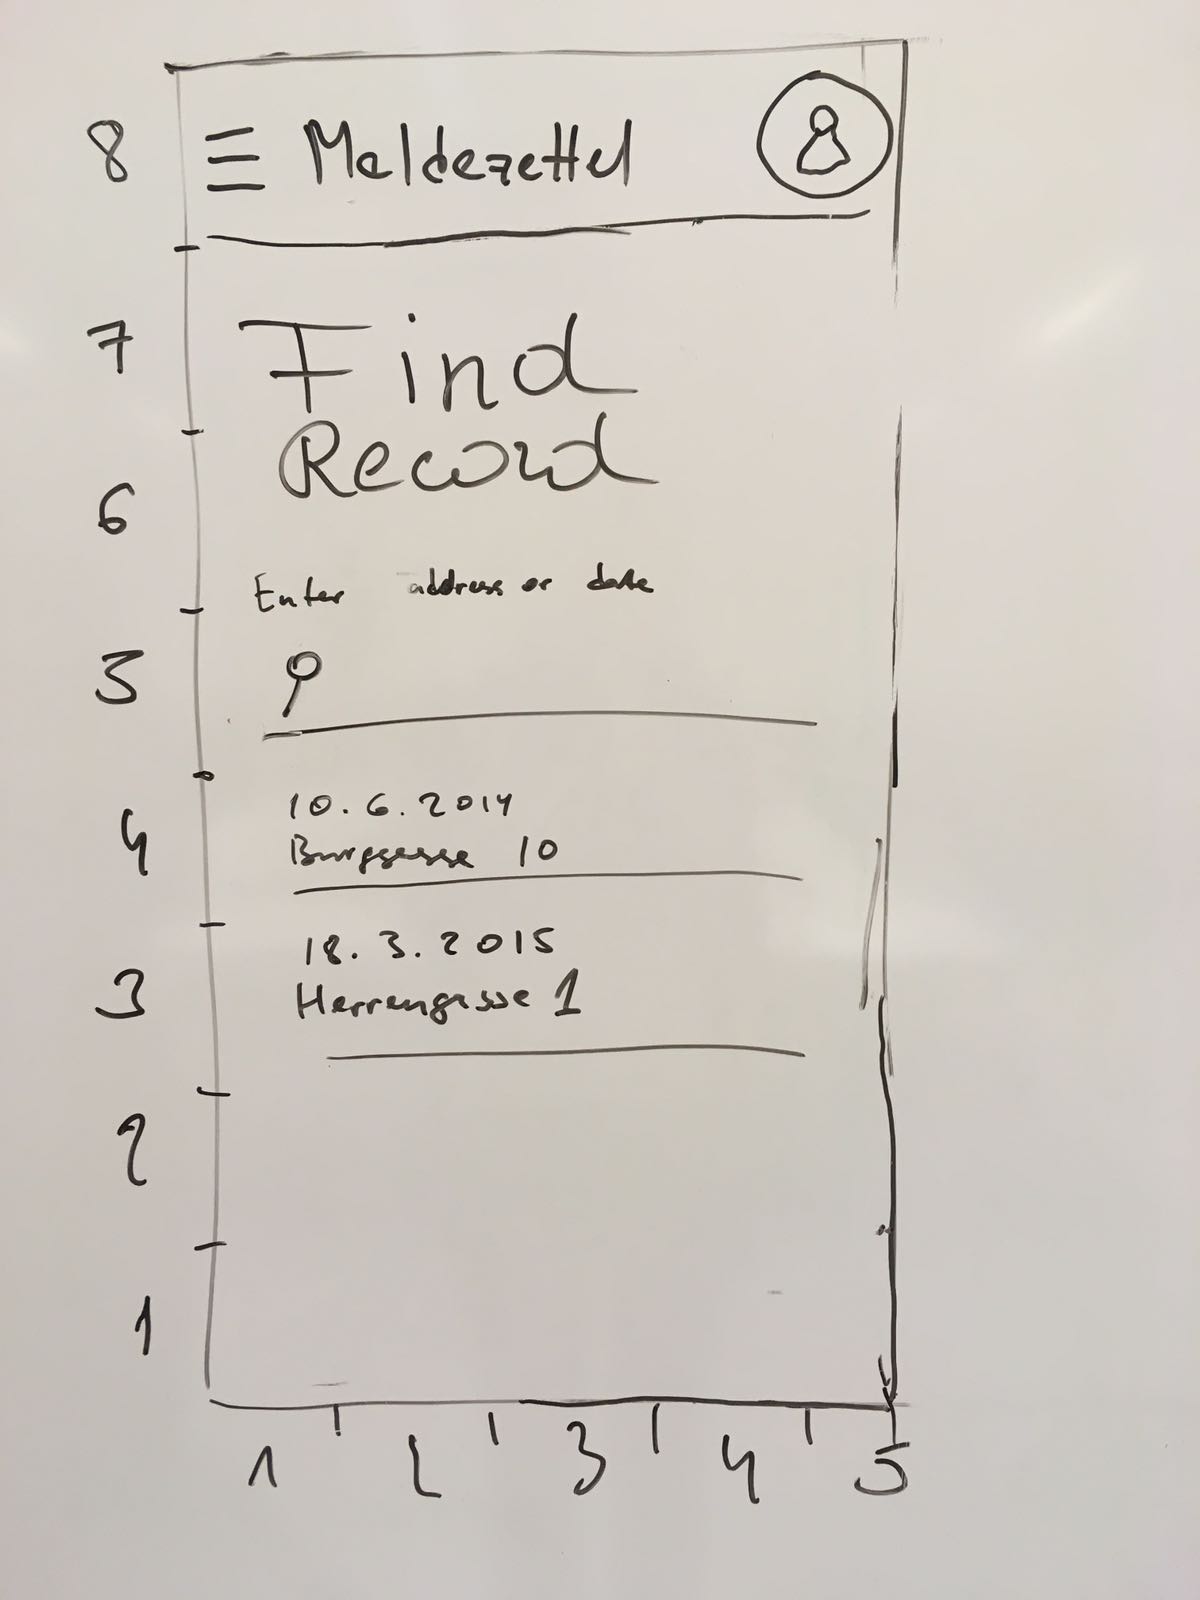 8
Meldezettel
7
Find
Record
6
Enter address or date
5
10.6.2014
4
Burggasse 10
18.3.2015
3
Herrengasse 1
2
1
1 2 3 4 5